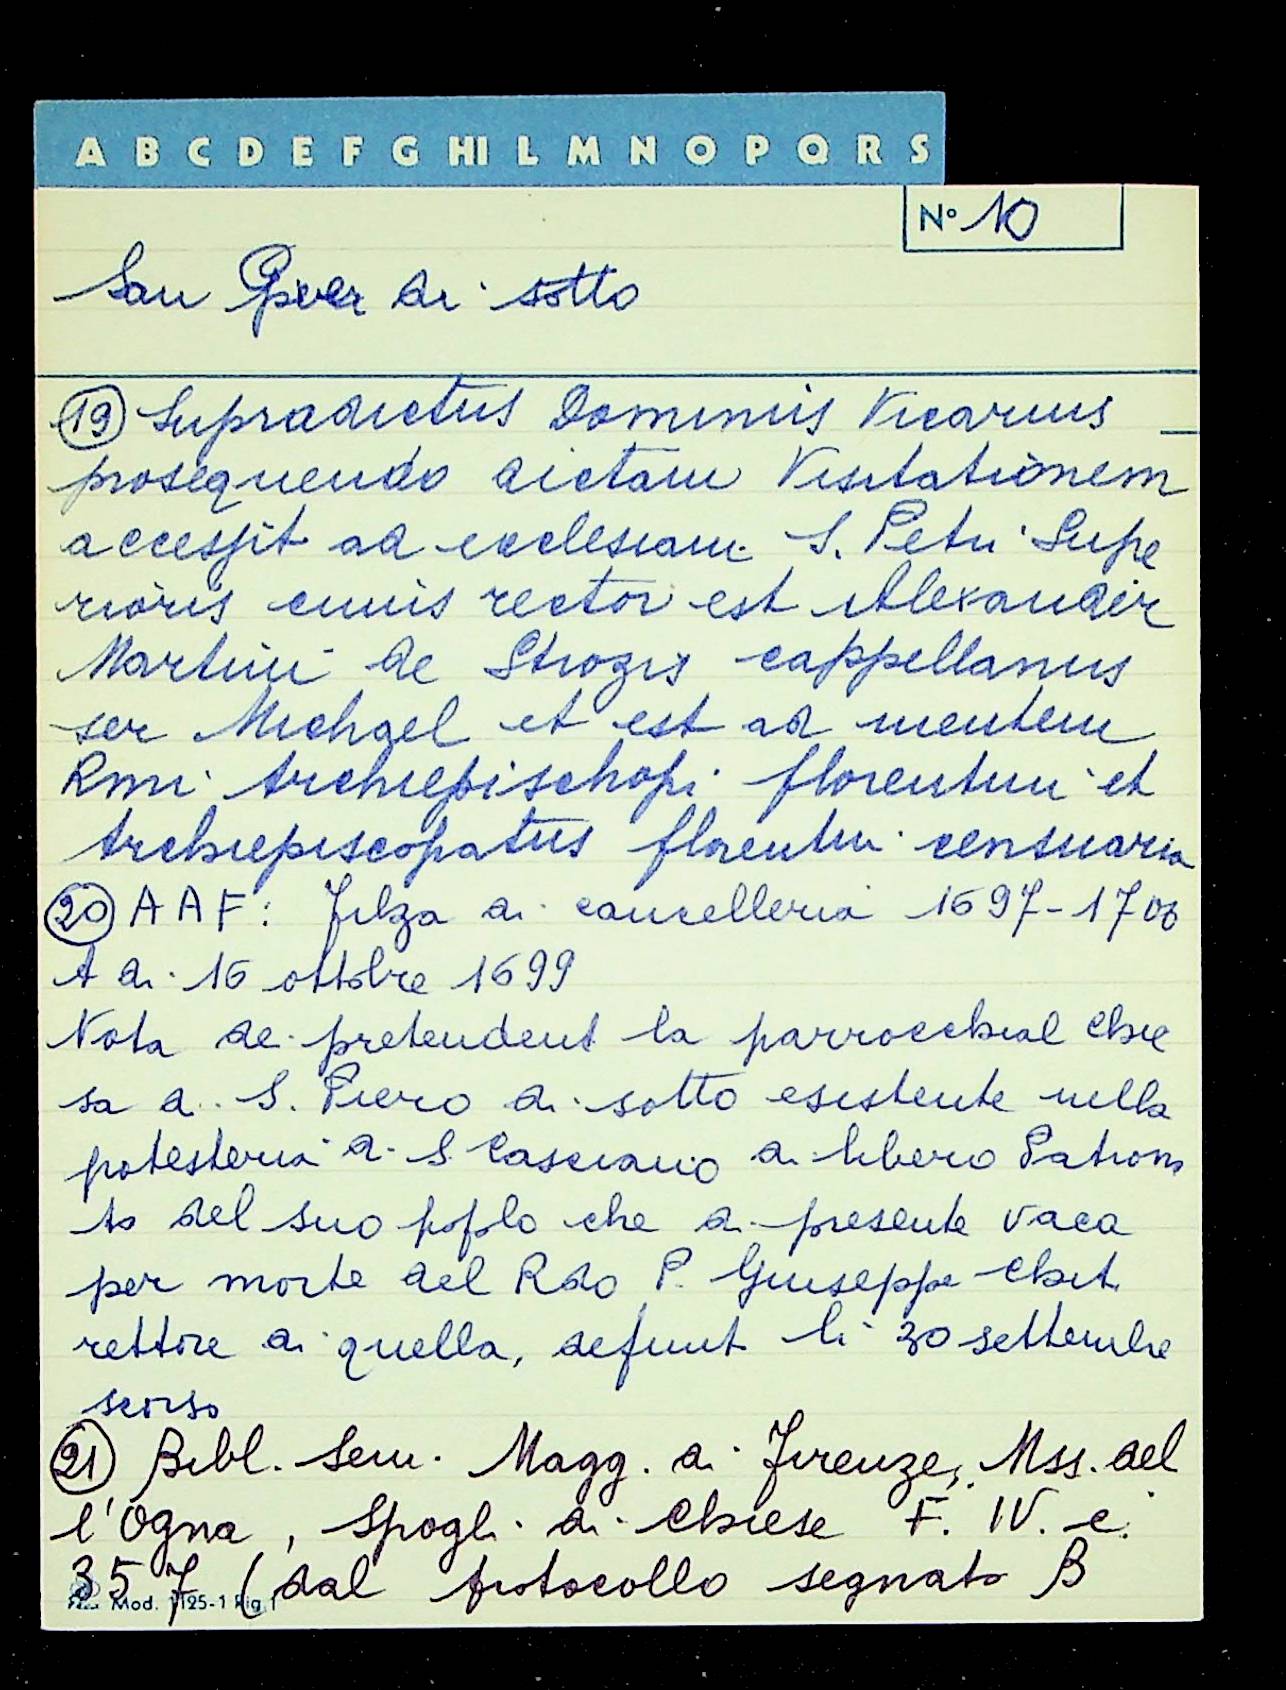 A B C D E F G HI L M N O P Q R S
N° 10
San Pier di sotto
19 Supradictus Dominus Vicarius
prosequendo dictam Visitationem
accessit ad ecclesiam S. Petri Supe
rioris cuius rector est Alexander
Martini de Strozis cappellanus
ser Michael et est ad mentem
Rmi Archiepischopi florentini et
Archiepiscopatus florentini censuaria
20 AAF: Filza di cancelleria 1697-1706
A di 16 ottobre 1699
Nota de pretendent la parrocchial Chie
sa di S. Piero di sotto esistente nella
potesteria di S Casciano di libero Patrona
to del suo poplo che di presente vaca
per morte del Rdo P. Giuseppe Chit.
rettore di quella, defunt li 30 settembre
scorso
21 Bibl. Sem. Magg. di Firenze, Mss. del
l'Ogna, Spogli di Chiese F. IV. c.
357 (dal protocollo segnato B
Mod. 1125-1 Rig. 1